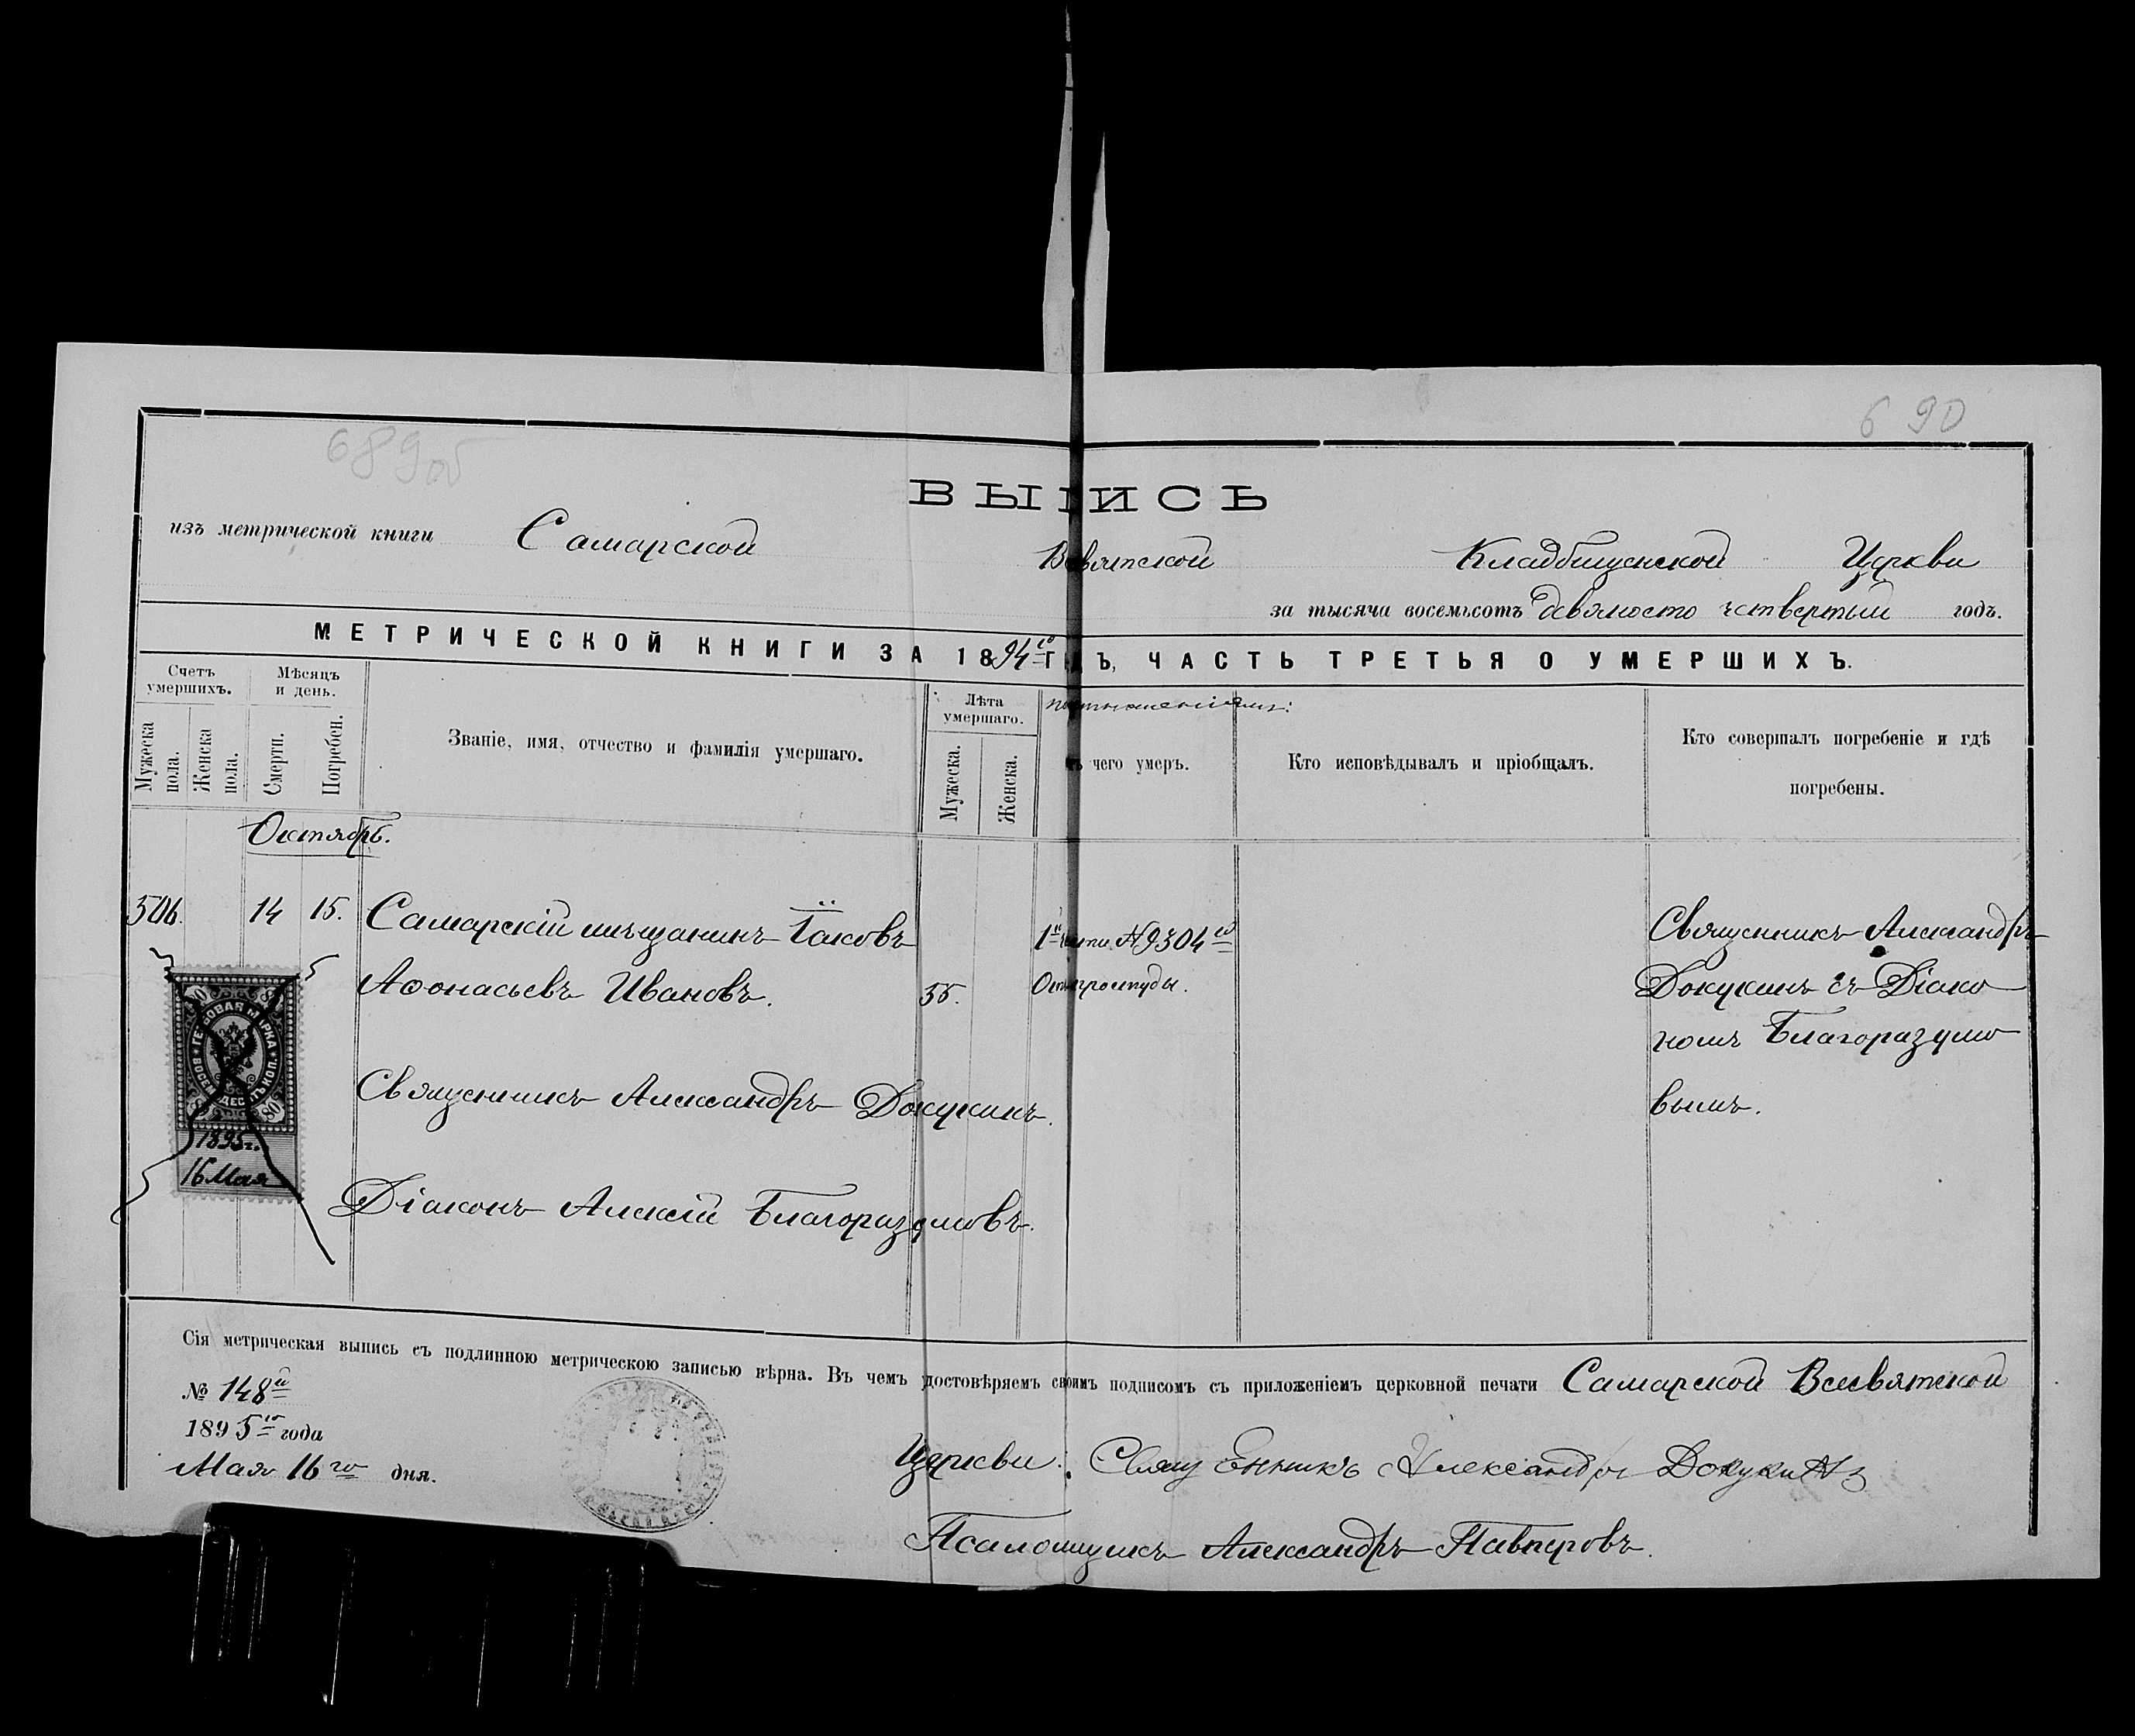 689 об
690
ВЫПИСЬ
изъ метрической книги Самарской Всвятской Кладбищенской Церкви
за тысяча восемьсотъ девяносто четвертый годъ.
МЕТРИЧЕСКОЙ КНИГИ ЗА 1894го ГОДЪ, ЧАСТЬ ТРЕТЬЯ О УМЕРШИХЪ.
Счетъ умершихъ.
Мужеска пола.
Женска пола.
Мѣсяцъ и день.
Смерти.
Погребен.
Званіе, имя, отчество и фамилія умершаго.
Лѣта умершаго.
Мужеска.
Женска.
по отношеніямъ:
чего умеръ.
Кто исповѣдывалъ и пріобщалъ.
Кто совершалъ погребеніе и гдѣ
погребены.
Октябрь.
506. 14 15. Самарскій мѣщанинъ Іаковъ
Аѳонасьевъ Ивановъ. 55.
1й части №9304го
Отъ простуды.
Священникъ Александръ
Докукинъ съ Діако
номъ Благоразумо
вымъ.
Священникъ Александръ Докукинъ.
Діаконъ Алексій Благоразумовъ.
ГЕРБОВАЯ МАРКА
ВОСЕМЬДЕСЯТЪ КОП.
80
1895 г.
16 Мая
Сія метрическая выпись съ подлинною метрическою записью вѣрна. Въ чемъ удостовѣряемъ своимъ подписомъ съ приложеніемъ церковной печати Самарской Всесвятской
№ 148й
1895го года
Мая 16го дня.
Церкви: Священникъ Александръ Докукинъ
Псаломщикъ Александръ Павперовъ.